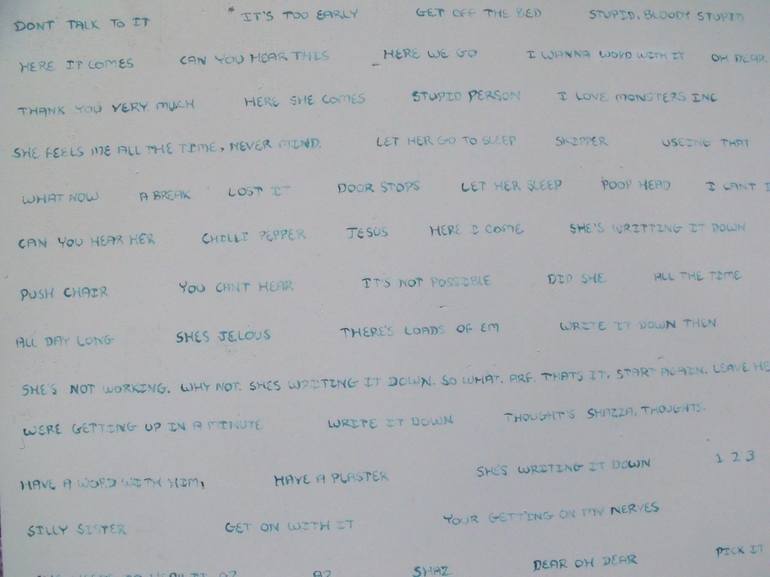 DONT TALK TO IT * IT'S TOO EARLY GET OFF THE BED STUPID, BLOODY STUPID
HERE IT COMES CAN YOU HEAR THIS HERE WE GO I WANNA WORD WITH IT OH DEAR.
THANK YOU VERY MUCH HERE SHE COMES STUPID PERSON I LOVE MONSTERS INC
SHE FEELS ME ALL THE TIME, NEVER MIND. LET HER GO TO SLEEP SKIPPER USEING THAT
WHAT NOW A BREAK LOST IT DOOR STOPS LET HER SLEEP POOP HEAD I CANT
CAN YOU HEAR HER CHILLI PEPPER JESUS HERE I COME SHE'S WRITTING IT DOWN
PUSH CHAIR YOU CANT HEAR IT'S NOT POSSIBLE DID SHE ALL THE TIME
ALL DAY LONG SHES JELOUS THERE'S LOADS OF EM WRITE IT DOWN THEN
SHE'S NOT WORKING. WHY NOT. SHES WRITING IT DOWN. SO WHAT. ARE. THATS IT. START AGAIN. LEAVE
WERE GETTING UP IN A MINUTE WRITE IT DOWN THOUGHT'S SHAZZA, THOUGHTS.
HAVE A WORD WITH HIM, HAVE A PLASTER SHE'S WRITING IT DOWN 1 2 3
SILLY SISTER GET ON WITH IT YOUR GETTING ON MY NERVES
SHAZ DEAR OH DEAR PICK IT